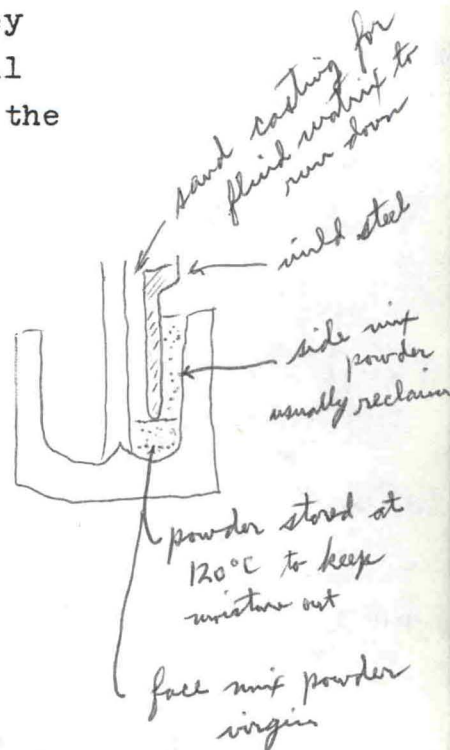 the
sand casting for
fluid matrix to
run down
mild steel
side mix
powder
usually reclaim
powder stored at
120°C to keep
moisture out
face mix powder
virgin